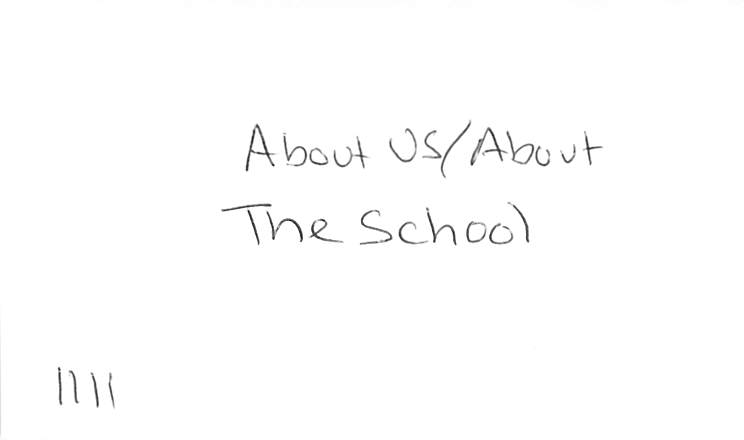 About US/About
The School
||||